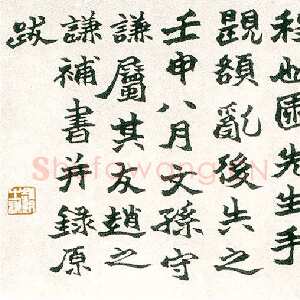 也園先生手
題額亂後失之
壬申八月文孫守
謙屬其友趙之
謙補書并録原
跋
Shufawang.CN